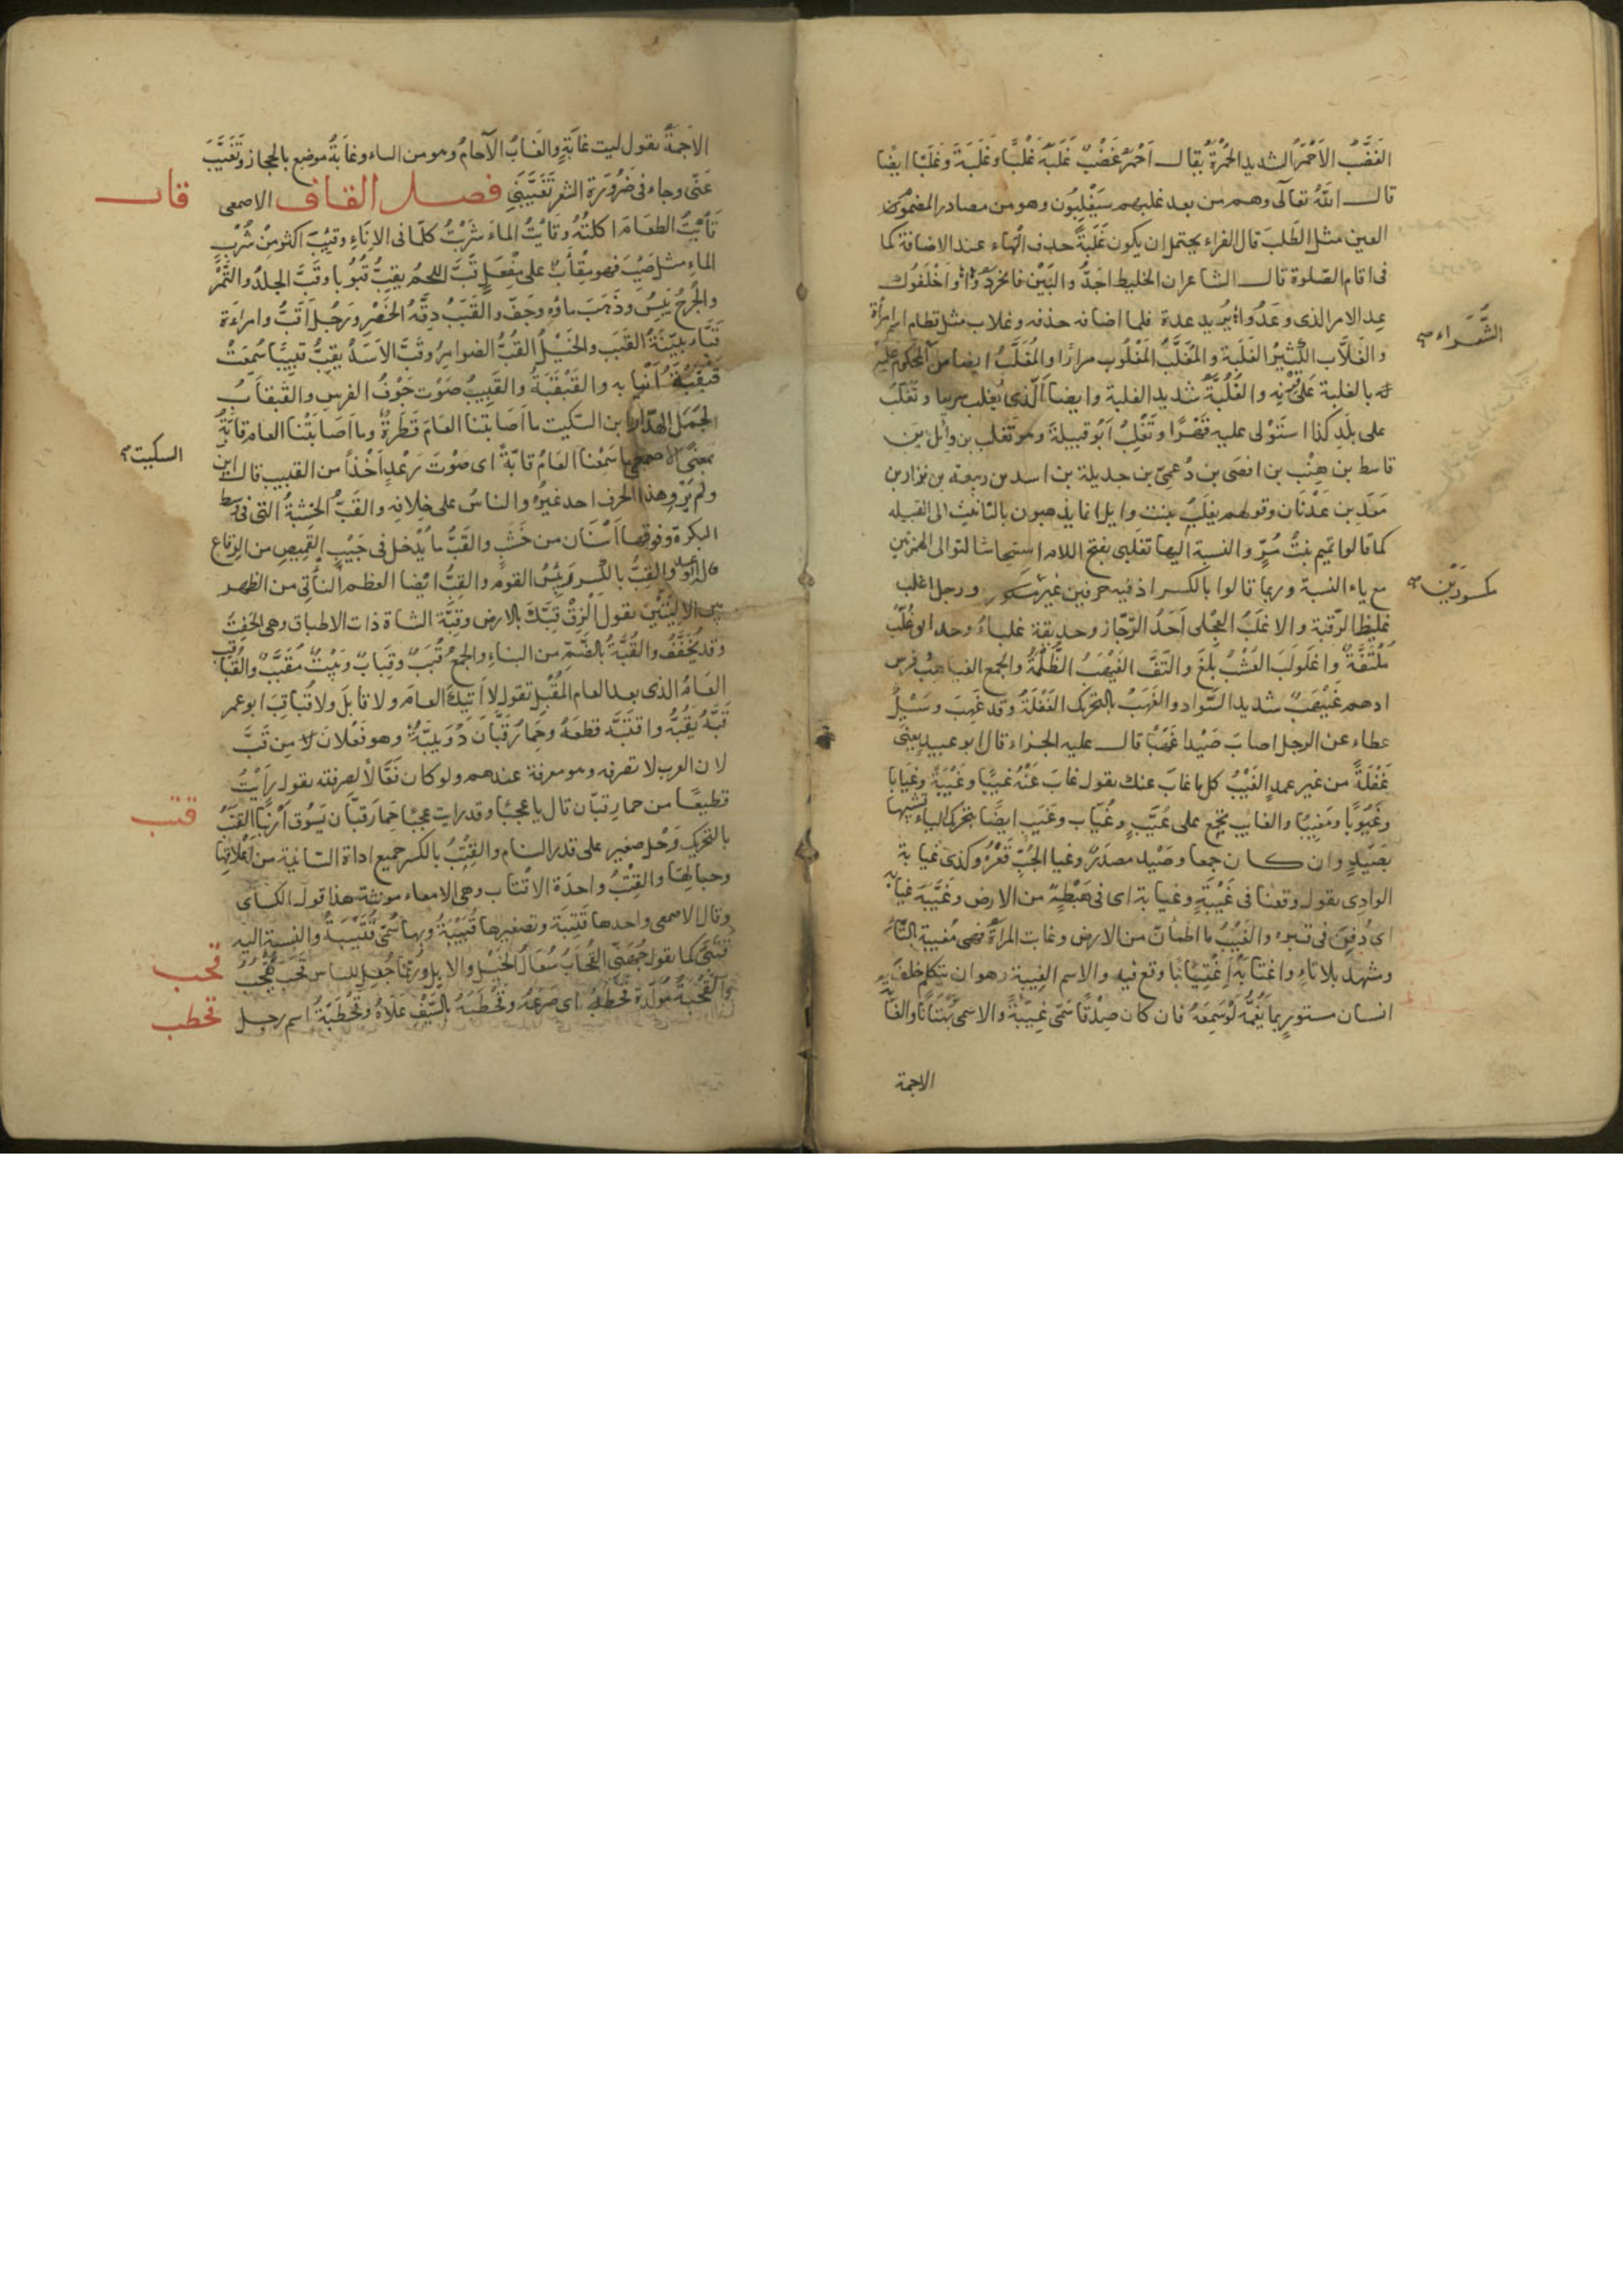 الغَضْبُ الاَحْمَرُ الشديد الحُمْرَةِ يُقال اَحْمَرُ غَضْبٌ غَلَبَهُ غَلْبًا وغَلَبَةً وغَلَبًا ايضًا
قال اللهُ تعالى وهم من بعد غلبهم سَيَغْلِبُون وهو من مصادر المضموم
العين مثل الطَلَبَ قال الفراء يحتمل ان يكون غَلَبَةً حذف الهاء عند الاضافة كما
فى اقام الصّلوة قال الشاعر ان الخليط اجَدُّ والبَيْنَ فانجَرَدُوا وَاَخْلَفُوك
عِد الامر الذى وعَدُوا يُريد عدة فلما اضافه حذفه وغلاب مثل قطام اسم امرأة
والغَلاَّب الكَثِيرُ الغَلَبَة والمُغَلَّبُ المَغْلُوب مرارًا والمُغَلَّبُ ايضا من المحكوم عليه
له بالغلبة على قِرْنِه والغُلُبَّةُ شديد الغلبة وايضا الّذى يُغلب سريعا وتَغَلَّبَ
على بَلَدِ كَذا استَوْلى عليه قَهْرًا وتَغْلِبُ اَبُو قبيلة وهو تغلب بن وائل بن
قاسط بن هِنْب بن افصَى بن دُعمِىّ بن جديلة بن اسد بن ربيعة بن نزار بن
مَعَدّ بن عَدْنَان وقولهم تغلبُ بنت وايل انما يذهبون بالتانيث الى القبيله
كما قالوا تميم بنتُ مُرٍّ والنسبة اليها تغلبى بفتح اللام استيحاشا لتوالى الكسرتين
مع ياء النسبة وربما قالوا بالكسر اذ فيه حرفين غير مكسور ورجل اغلب
غليظ الرّقبة والاغلَبُ العِجْلى اَحَدُ الرّجاز وحديقة غلباءُ وحدايق غُلْبٌ
مُلتَفَّةٌ واغْلَولَبَ العُشْبُ بلغَ والتَفَّ الغَيْهَبُ الظُّلْمَةُ والجمع الغياهبُ فرس
ادهم غَيْهَبٌ شديد السَّواد والغَهَبُ بالتحريك الغَفْلَةُ وقد غَهِبَ وسُئِلَ
عطاء عن الرجل اصابَ صَيْدا غَهَبًا قال عليه الجزاء قال ابو عبيد يعنى
غَفْلَةً من غير عمدٍ الغَيْبُ كل ما غابَ عنك تقول غابَ عَنْهُ غيبًا وغَيْبَةً وغيَابا
وغُيُوبًا ومَغِيبًا والغايب يجمع على غُيَّبٍ وغُيَّابٍ وغَيَبٍ ايضًا بتحريك الياء تشبيها
بصَيَدٍ وان كان جمعا وصَيَد مصدرٌ وغيابة الجُبِّ قَعْرُهُ وكذلك غيابة
الوادِى تقول وقعنا فى غَيْبَةٍ وغيابة اى فى هَبْطَةٍ من الارض وغَيَّبَهُ غيابه
اى دُفِنَ فى قبره والغَيْبُ ما اطمأنّ من الارض وغابت المرأةُ فهى مُغيبة بالتَّاءِ
ومُشهد بلا تاءِ واغتابَهُ اغتِيَابًا وقع فيه والاسم الغِيبة وهو ان يتكلم خلف
انسان مستورٍ بما يَغُمُّهُ لَوْ سَمِعَهُ فان كان صِدْقًا سُمّى غِيبَةً والا سمى بُهتانًا والغابَة
الشَّعَراء صح
مكسورتين صح
الاجمة
الاَجَمَةُ تقول ليث غَابَةٍ والغَابُ الآجامُ وهو من الياء وغَابَةُ موضع بالحجاز وتَغَيَّبَ
عَنِّى وجاء فى ضَرُورَة الشعر تَغَيَّبَنِى فصل القاف الاصمعى
قاب
قَأبْتُ الطعَامَ اكلتُهُ وقَأبْتُ الماءَ شَرِبْتُ كلّ ما فى الاِنَاءِ وقَئِبَ اكثر مِنْ شُرْب
الماءِ مثل صَئِبَ فهو مِقْأَبٌ على مِفْعَلٍ قَبَّ اللحمُ يقِبُّ قُبُوبا وقَبَّ الجلدُ والتَّمْرُ
والجُرحُ يَبِسَ وذَهَبَ ماؤه وجَفَّ والقَبَبُ دِقَّةُ الخَصْرِ ورَجُل اَقَبُّ وامراءة
قَبَّاءُ بيّنَةُ القَبَب والخَيْلُ القُبُّ الضوامِرُ وقَبَّ الاَسَدُ يقِبُّ قبيبًا سُمِعَتْ
قَبْقَبَةُ اَنيابه والقَبْقَبَةُ والقَبيبُ صَوْت جَوْف الفرس والقَبقَابُ
الجَمَل الهَدَّار ابن السّكيت ما اَصَابتنا العَامَ قَطرةٌ وما اَصَابَتْنا العام قابَّةٌ
بمعنًى الاصمعى ما سَمِعْنا العَامَ قابَّةً اى صَوْتَ رَعْدٍ اَخْذًا من القبيب قال ابن
السكيت
ولم يَرْوِ هذا الحرف احد غيرُهُ والناسُ على خِلافِه والقَبُّ الخشبةُ التى فى وسط
البكرةِ وفوقها اَسْنَان من خَشَبٍ والقَبُّ ما يُدْخل فى جَيْب القَمِيص من الرقاع
والقِبُّ بالكَسر رَئِيْسُ القوم والقِبُّ ايضا العظم الناتى من الظهر
بين الاَلْيَتَيْنِ تقول اَلْزِقْ قِبَّكَ بالارض وقِبَّة الشاة ذات الاطباق وهى الحَفِثُ
وقد تُخَفَّفُ والقُبَّةُ بالضَّمِّ من البناءِ والجمع قُبَبٌ وقِبَابٌ وبَيْتٌ مُقَبَّبٌ والقُباقِبُ
العَامُ الذى بعد العام المُقْبِل تقول لا اَتِيكَ العامَ ولا قابلَ ولا قُباقِبَ ابو عمر
قَبَّهُ يَقُبُّهُ واقتَبَّه قطعَهُ وحِمَارُ قَبَّانَ دُوَيبَّةٌ وهو فَعْلان من قَبَّ
لان العرب لا تصرفه وهو معرفة عندهم ولو كان فَعَّالا لصرفته تقول رَاَيْتُ
قطيعًا من حمار قبّان قال يا عجبًا وقد رايت عجبًا حِمَارَ قَبَّان يَسُوقُ اَرْنَبًا القَتَبُ
قتب
بالتحريك رَحْل صغير على قدر السنام والقِتْبُ بالكسر جميع اداة السّانِية من اعلاقها
وحبالِهَا والقِتْبُ واحدة الاَقتاب وهى الامعاء مونثة هذا قول الكساى
وقال الاصمعى واحدها قِتبَة وتصغيرها قُتَيْبَةُ وبها سُمّى قُتَيْبَةُ والنسبة اليه
قُتَبِىٌّ كما تقول جُهَنىٌّ القُحَابُ سُعَالُ الخَيْل والابل ورُبَّمَا جُعِل للناس قَحَبَ يَقْحُبُ
قحب
والقَحْبَةُ مُوَلّدة قَحطَبَهُ اى صَرَعَهُ وقَحْطَبَهُ بالسَّيْفِ عَلاهُ وقَحْطَبَةُ اسم رجل
قحطب